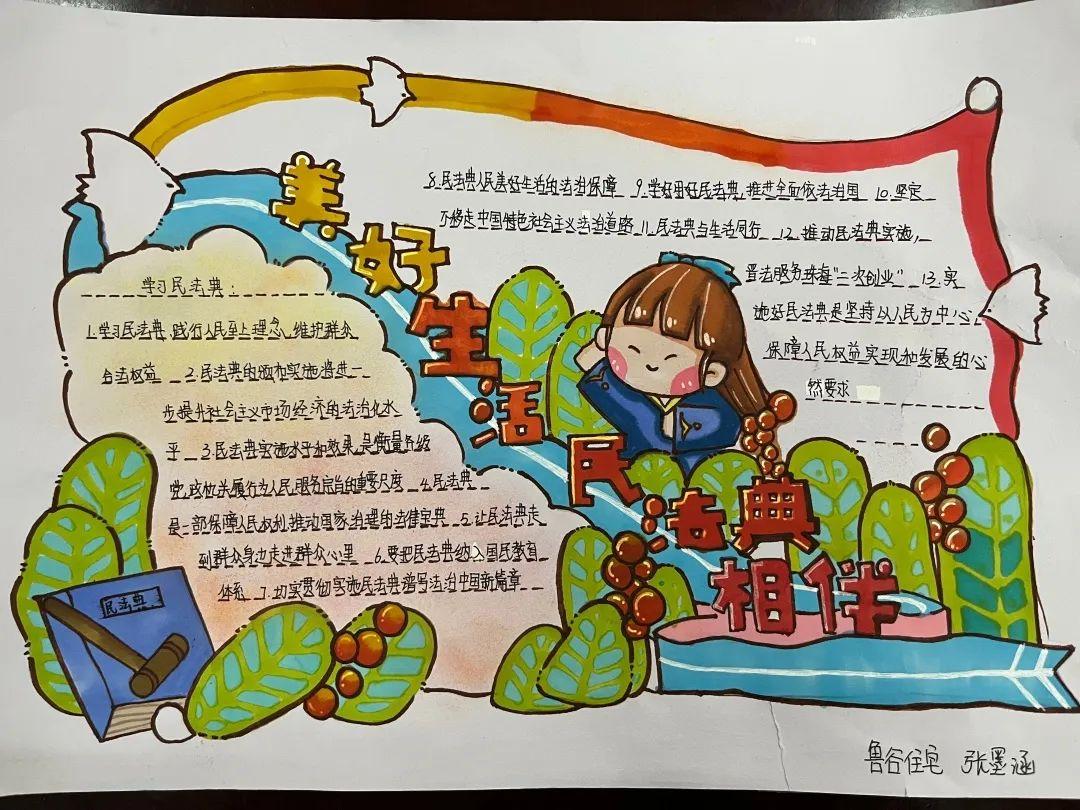 美好生活民法典相伴
8.民法典人民美好生活的法治保障 9.学好用好民法典,推进全面依法治国 10.坚定
不移走中国特色社会主义法治道路 11.民法典与生活同行 12.推动民法典实施,
普法服务珠海"二次创业" 13.实
施好民法典是坚持以人民为中心
保障人民权益实现和发展的心
然要求
学习民法典:
1.学习民法典,践行人民至上理念,维护群众
合法权益 2.民法典的颁布实施将进一
步提升社会主义市场经济的法治化水
平 3.民法典实施水平和效果,是衡量各级
党政机关履行为人民服务宗旨的重要尺度 4.民法典
是一部保障人民权利,推动国家治理的法律宝典 5.让民法典走
到群众身边走进群众心里 6.要把民法典纳入国民教育
体系 7.切实贯彻实施民法典谱写法治中国新篇章
民法典
鲁谷住宅 张墨涵